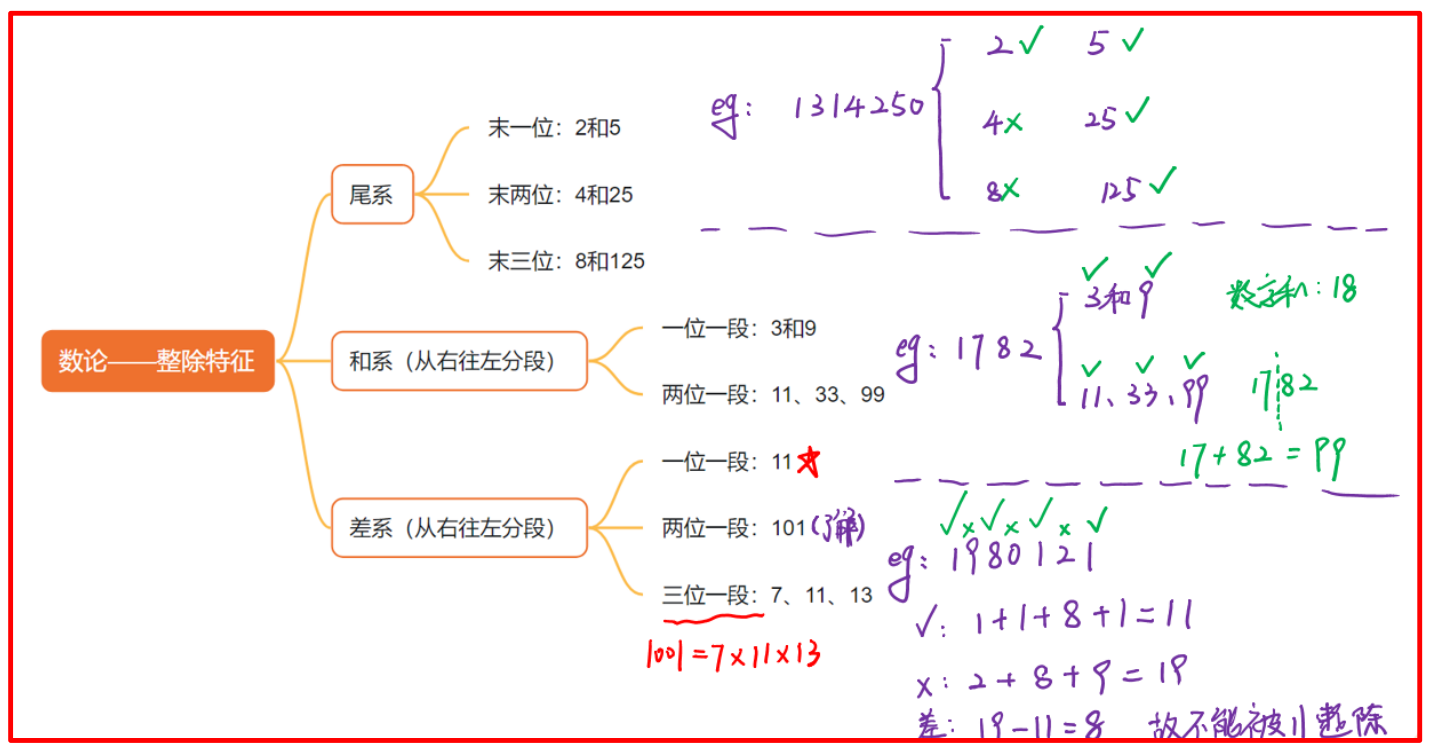 数论——整除特征
尾系
末一位：2和5
末两位：4和25
末三位：8和125
和系（从右往左分段）
一位一段：3和9
两位一段：11、33、99
差系（从右往左分段）
一位一段：11★
两位一段：101(了解)
三位一段：7、11、13
1001=7×11×13
eg: 1314250
2✓ 5✓
4× 25✓
8× 125✓
eg: 1782
✓ ✓
3和9
数字和: 18
✓ ✓ ✓
11、33、99
17 82
17+82=99
✓×✓×✓×✓
eg: 1980121
✓: 1+1+8+1=11
×: 2+8+9=19
差: 19-11=8 故不能被11整除